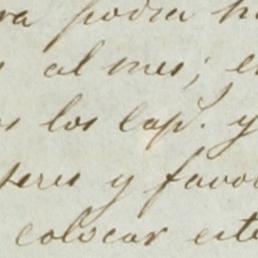 va podia ha
s al mes; e
os los cap.^s y
teres y favo
colocar este